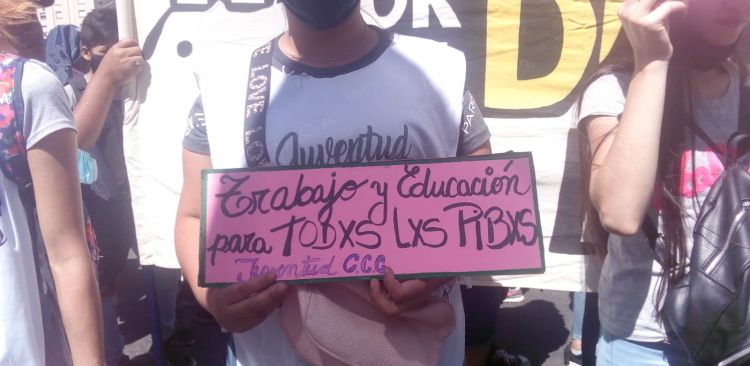 OR
D
LOVE
Juventud
PARE
Trabajo y Educación
para TODXS LXS PIBXS
Juventud C.C.C.